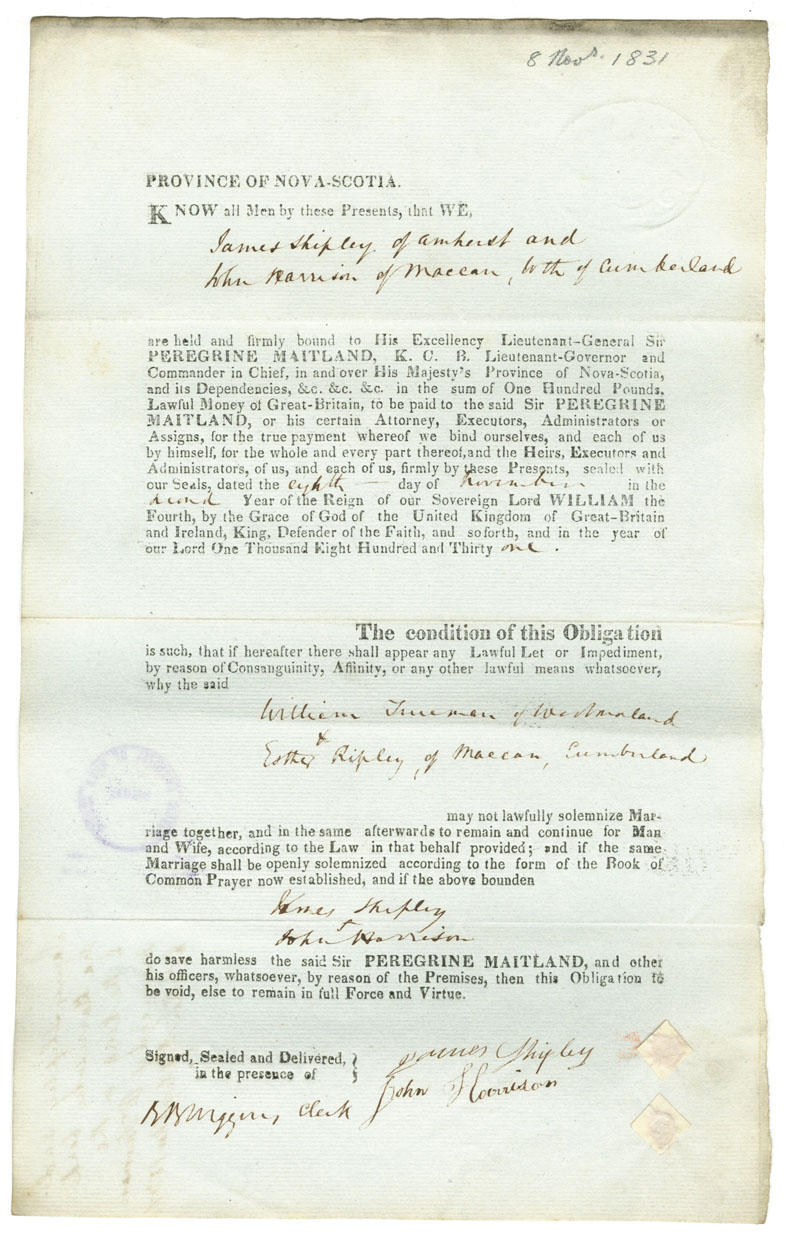 8 Novr. 1831
PROVINCE OF NOVA-SCOTIA.
KNOW all Men by these Presents, that WE,
James Shipley of Amherst and
John Harrison of Maccan, both of Cumberland
are held and firmly bound to His Excellency Lieutenant-General Sir
PEREGRINE MAITLAND, K. C. B. Lieutenant-Governor and
Commander in Chief, in and over His Majesty's Province of Nova-Scotia,
and its Dependencies, &c. &c. &c. in the sum of One Hundred Pounds,
Lawful Money of Great-Britain, to be paid to the said Sir PEREGRINE
MAITLAND, or his certain Attorney, Executors, Administrators or
Assigns, for the true payment whereof we bind ourselves, and each of us
by himself, for the whole and every part thereof, and the Heirs, Executors and
Administrators, of us, and each of us, firmly by these Presents, sealed with
our Seals, dated the eighth — day of November in the
second Year of the Reign of our Sovereign Lord WILLIAM the
Fourth, by the Grace of God of the United Kingdom of Great-Britain
and Ireland, King, Defender of the Faith, and soforth, and in the year of
our Lord One Thousand Eight Hundred and Thirty one.
The condition of this Obligation
is such, that if hereafter there shall appear any Lawful Let or Impediment,
by reason of Consanguinity, Affinity, or any other lawful means whatsoever,
why the said
William Trueman of Westmorland
&
Esther Ripley, of Maccan, Cumberland
may not lawfully solemnize Mar-
riage together, and in the same afterwards to remain and continue for Man
and Wife, according to the Law in that behalf provided; and if the same
Marriage shall be openly solemnized according to the form of the Book of
Common Prayer now established, and if the above bounden
James Shipley
&
John Harrison
do save harmless the said Sir PEREGRINE MAITLAND, and other
his officers, whatsoever, by reason of the Premises, then this Obligation to
be void, else to remain in full Force and Virtue.
Signed, Sealed and Delivered,
in the presence of
James Shipley
John Harrison
Clerk